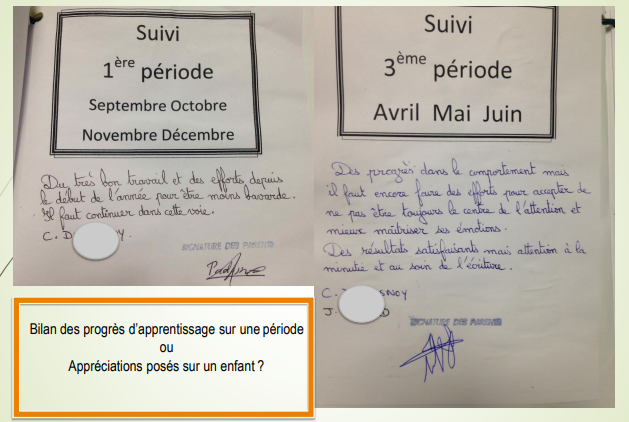 Suivi
1ère période
Septembre Octobre
Novembre Décembre
Du très bon travail et des efforts depuis
le début de l'année pour être moins bavarde.
Il faut continuer dans cette voie.
C. D Y
SIGNATURE DES PARENTS
Suivi
3ème période
Avril Mai Juin
Des progrès dans le comportement mais
il faut encore faire des efforts pour accepter de
ne pas être toujours le centre de l'attention et
mieux maîtriser ses émotions.
Des résultats satisfaisants mais attention à la
minutie et au soin de l'écriture.
C. SNOY
J. D
SIGNATURE DES PARENTS
Bilan des progrès d'apprentissage sur une période
ou
Appréciations posés sur un enfant ?